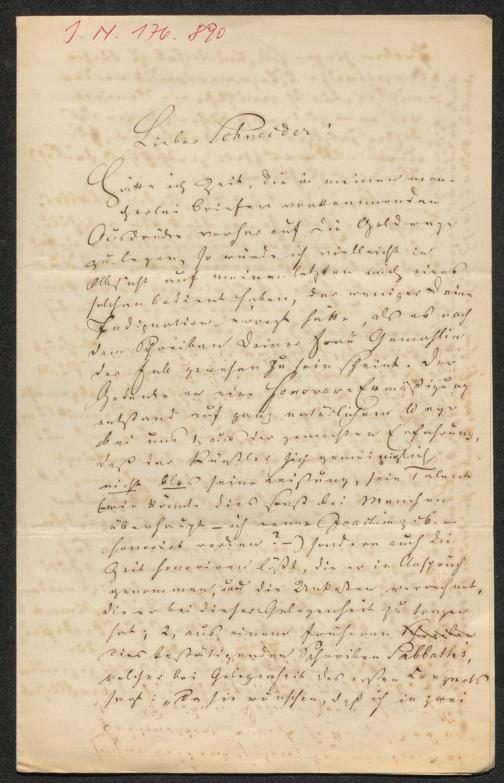 J. N. 176.890
Lieber Schneider!
Hätte ich Zeit, die in meinen man-
cherlei Briefen vorkommenden
Ausdrücke vorher auf die Goldwage
zu legen, so würde ich vielleicht in
auf meinen letzten auch eines
solchen bedient haben, der weniger Deine
Indignation erregt hätte, als es nach
dem Schreiben Deiner Frau Gemahlin
der Fall gewesen zu sein scheint. Der
Gedanke an eine Honorar-Ermäßigung
entstand auf ganz natürlichem Wege
bei uns 1, aus der gemachten Erfahrung,
daß der Künstler sich gemeiniglich
nicht blos seine Leistung, sein Talent
(wie könnte dies sonst bei Manchen
überhaupt – ich nenne Joachim z. B. –
honorirt werden? –) sondern auch die
Zeit honoriren läßt, die er in Anspruch
genommen, und die Unkosten verrechnet,
die er bei dieser Gelegenheit zu tragen
hat; 2, aus einem früheren
dies bestätigenden Schreiben Sabbath's,
welcher bei Gelegenheit des ersten Konzerts
sagt: „Da Sie wünschen, daß ich in zwei